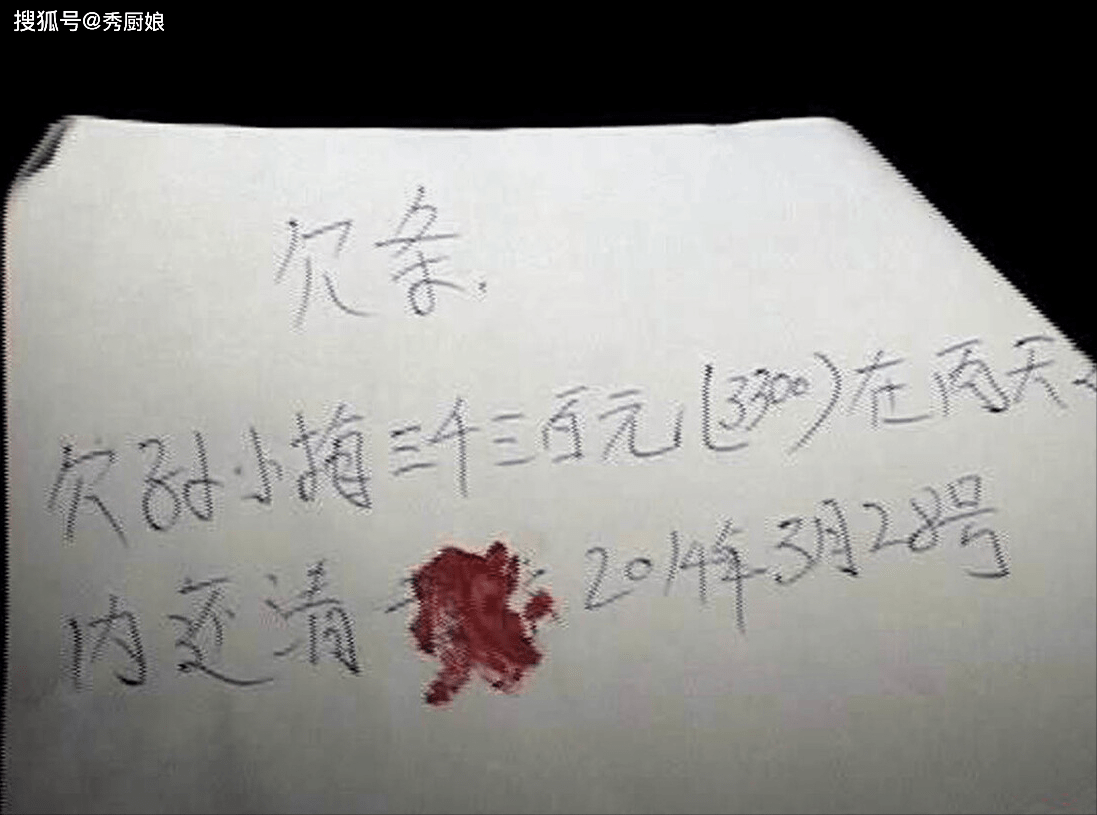 搜狐号@秀厨娘
欠条.
欠孙小梅三千三百元(3300)在两天
内还清 2014年3月28号